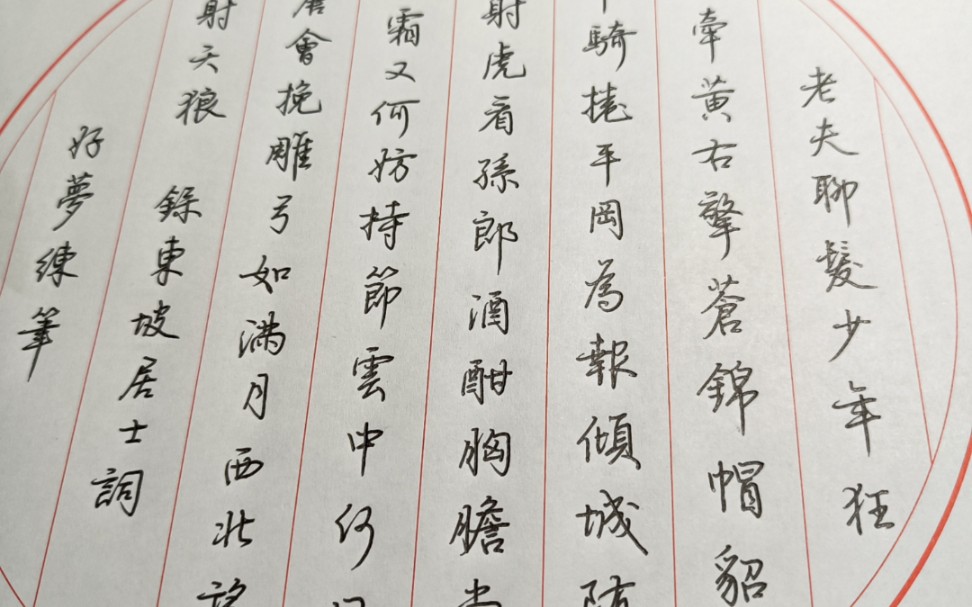 老夫聊髮少年狂
牽黃右擎蒼錦帽貂
騎捲平岡為報傾城隨
射虎看孫郎酒酣胸膽尚
霜又何妨持節雲中何日
會挽雕弓如滿月西北望
射天狼 錄東坡居士詞
好夢練筆